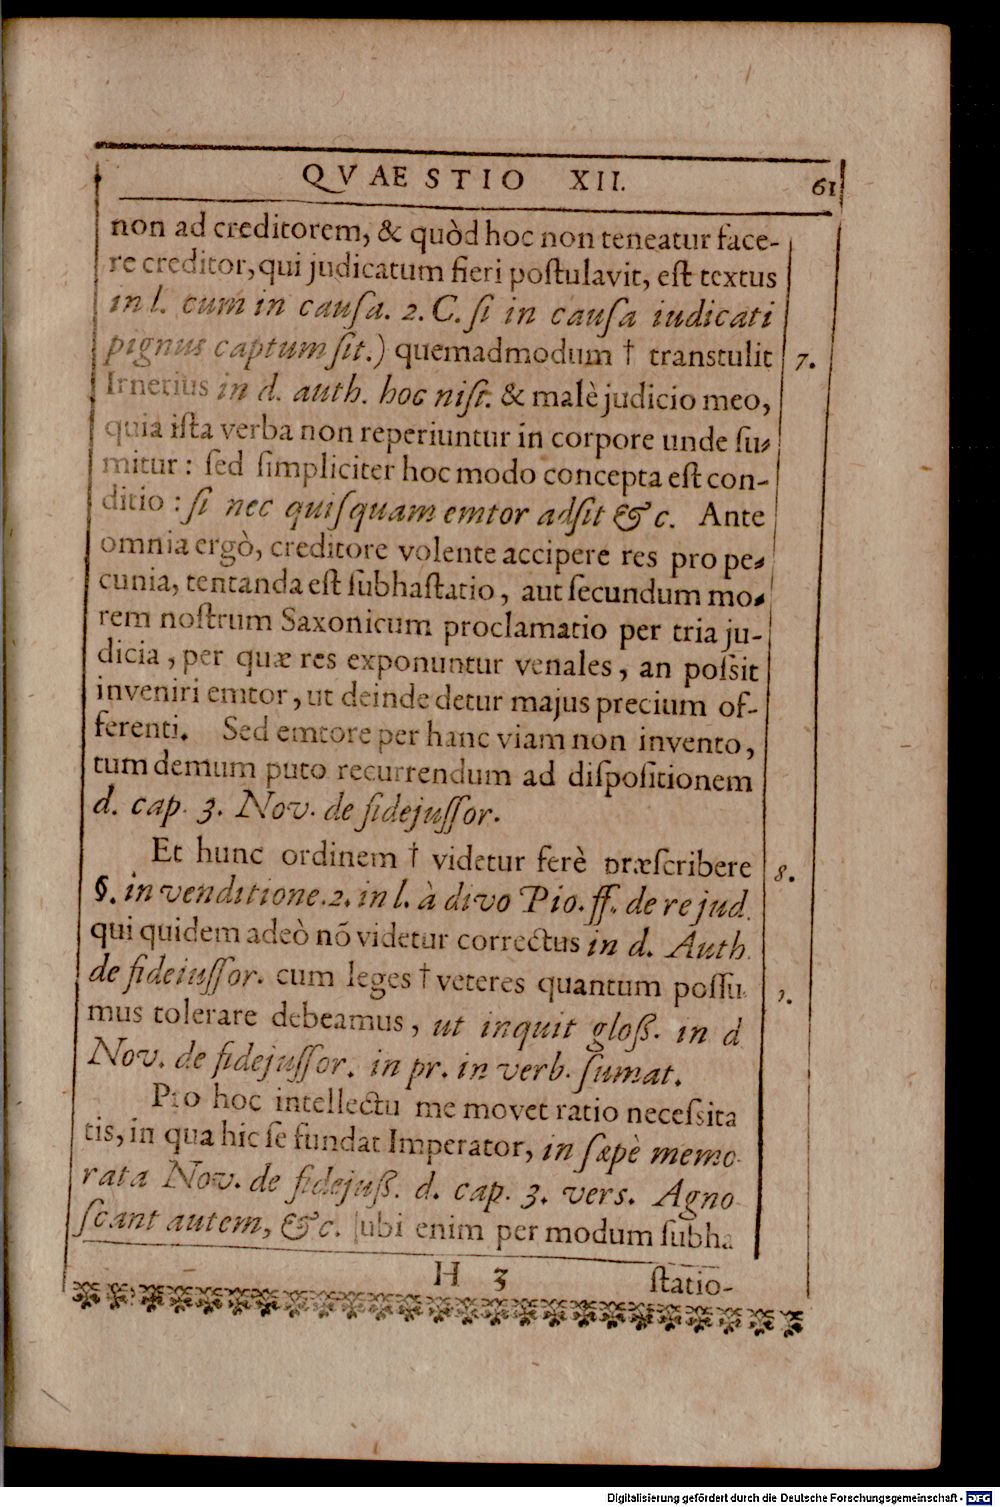 QVAESTIO XII. 61
non ad creditorem, & quòd hoc non teneatur face-
re creditor, qui judicatum fieri poſtulavit, eſt textus
in l. cum in cauſa. 2. C. ſi in cauſa iudicati
pignus captum ſit.) quemadmodum † transtulit 7.
Irnerius in d. auth. hoc niſi. & malè judicio meo,
quia iſta verba non reperiuntur in corpore unde ſu-
mitur: ſed ſimpliciter hoc modo concepta eſt con-
ditio: ſi nec quiſquam emtor adſit &c. Ante
omnia ergò, creditore volente accipere res pro pe-
cunia, tentanda eſt ſubhaſtatio, aut ſecundum mo-
rem noſtrum Saxonicum proclamatio per tria ju-
dicia, per quæ res exponuntur venales, an poſsit
inveniri emtor, ut deinde detur majus precium of-
ferenti. Sed emtore per hanc viam non invento,
tum demum puto recurrendum ad diſpoſitionem
d. cap. 3. Nov. de fidejuſſor.
Et hunc ordinem † videtur ferè præſcribere 8.
§. in venditione. 2. in l. à divo Pio. ff. de re jud.
qui quidem adeò nõ videtur correctus in d. Auth.
de fideiuſſor. cum leges † veteres quantum poſſu
mus tolerare debeamus, ut inquit gloß. in d
Nov. de fidejuſſor. in pr. in verb. ſumat.
Pro hoc intellectu me movet ratio neceſsita
tis, in qua hic ſe fundat Imperator, in ſæpè memo-
rata Nov. de fidejuß. d. cap. 3. verſ. Agno
ſcant autem, &c. ſubi enim per modum ſubha
H 3 ſtatio-
Digitalisierung gefördert durch die Deutsche Forschungsgemeinschaft - DFG